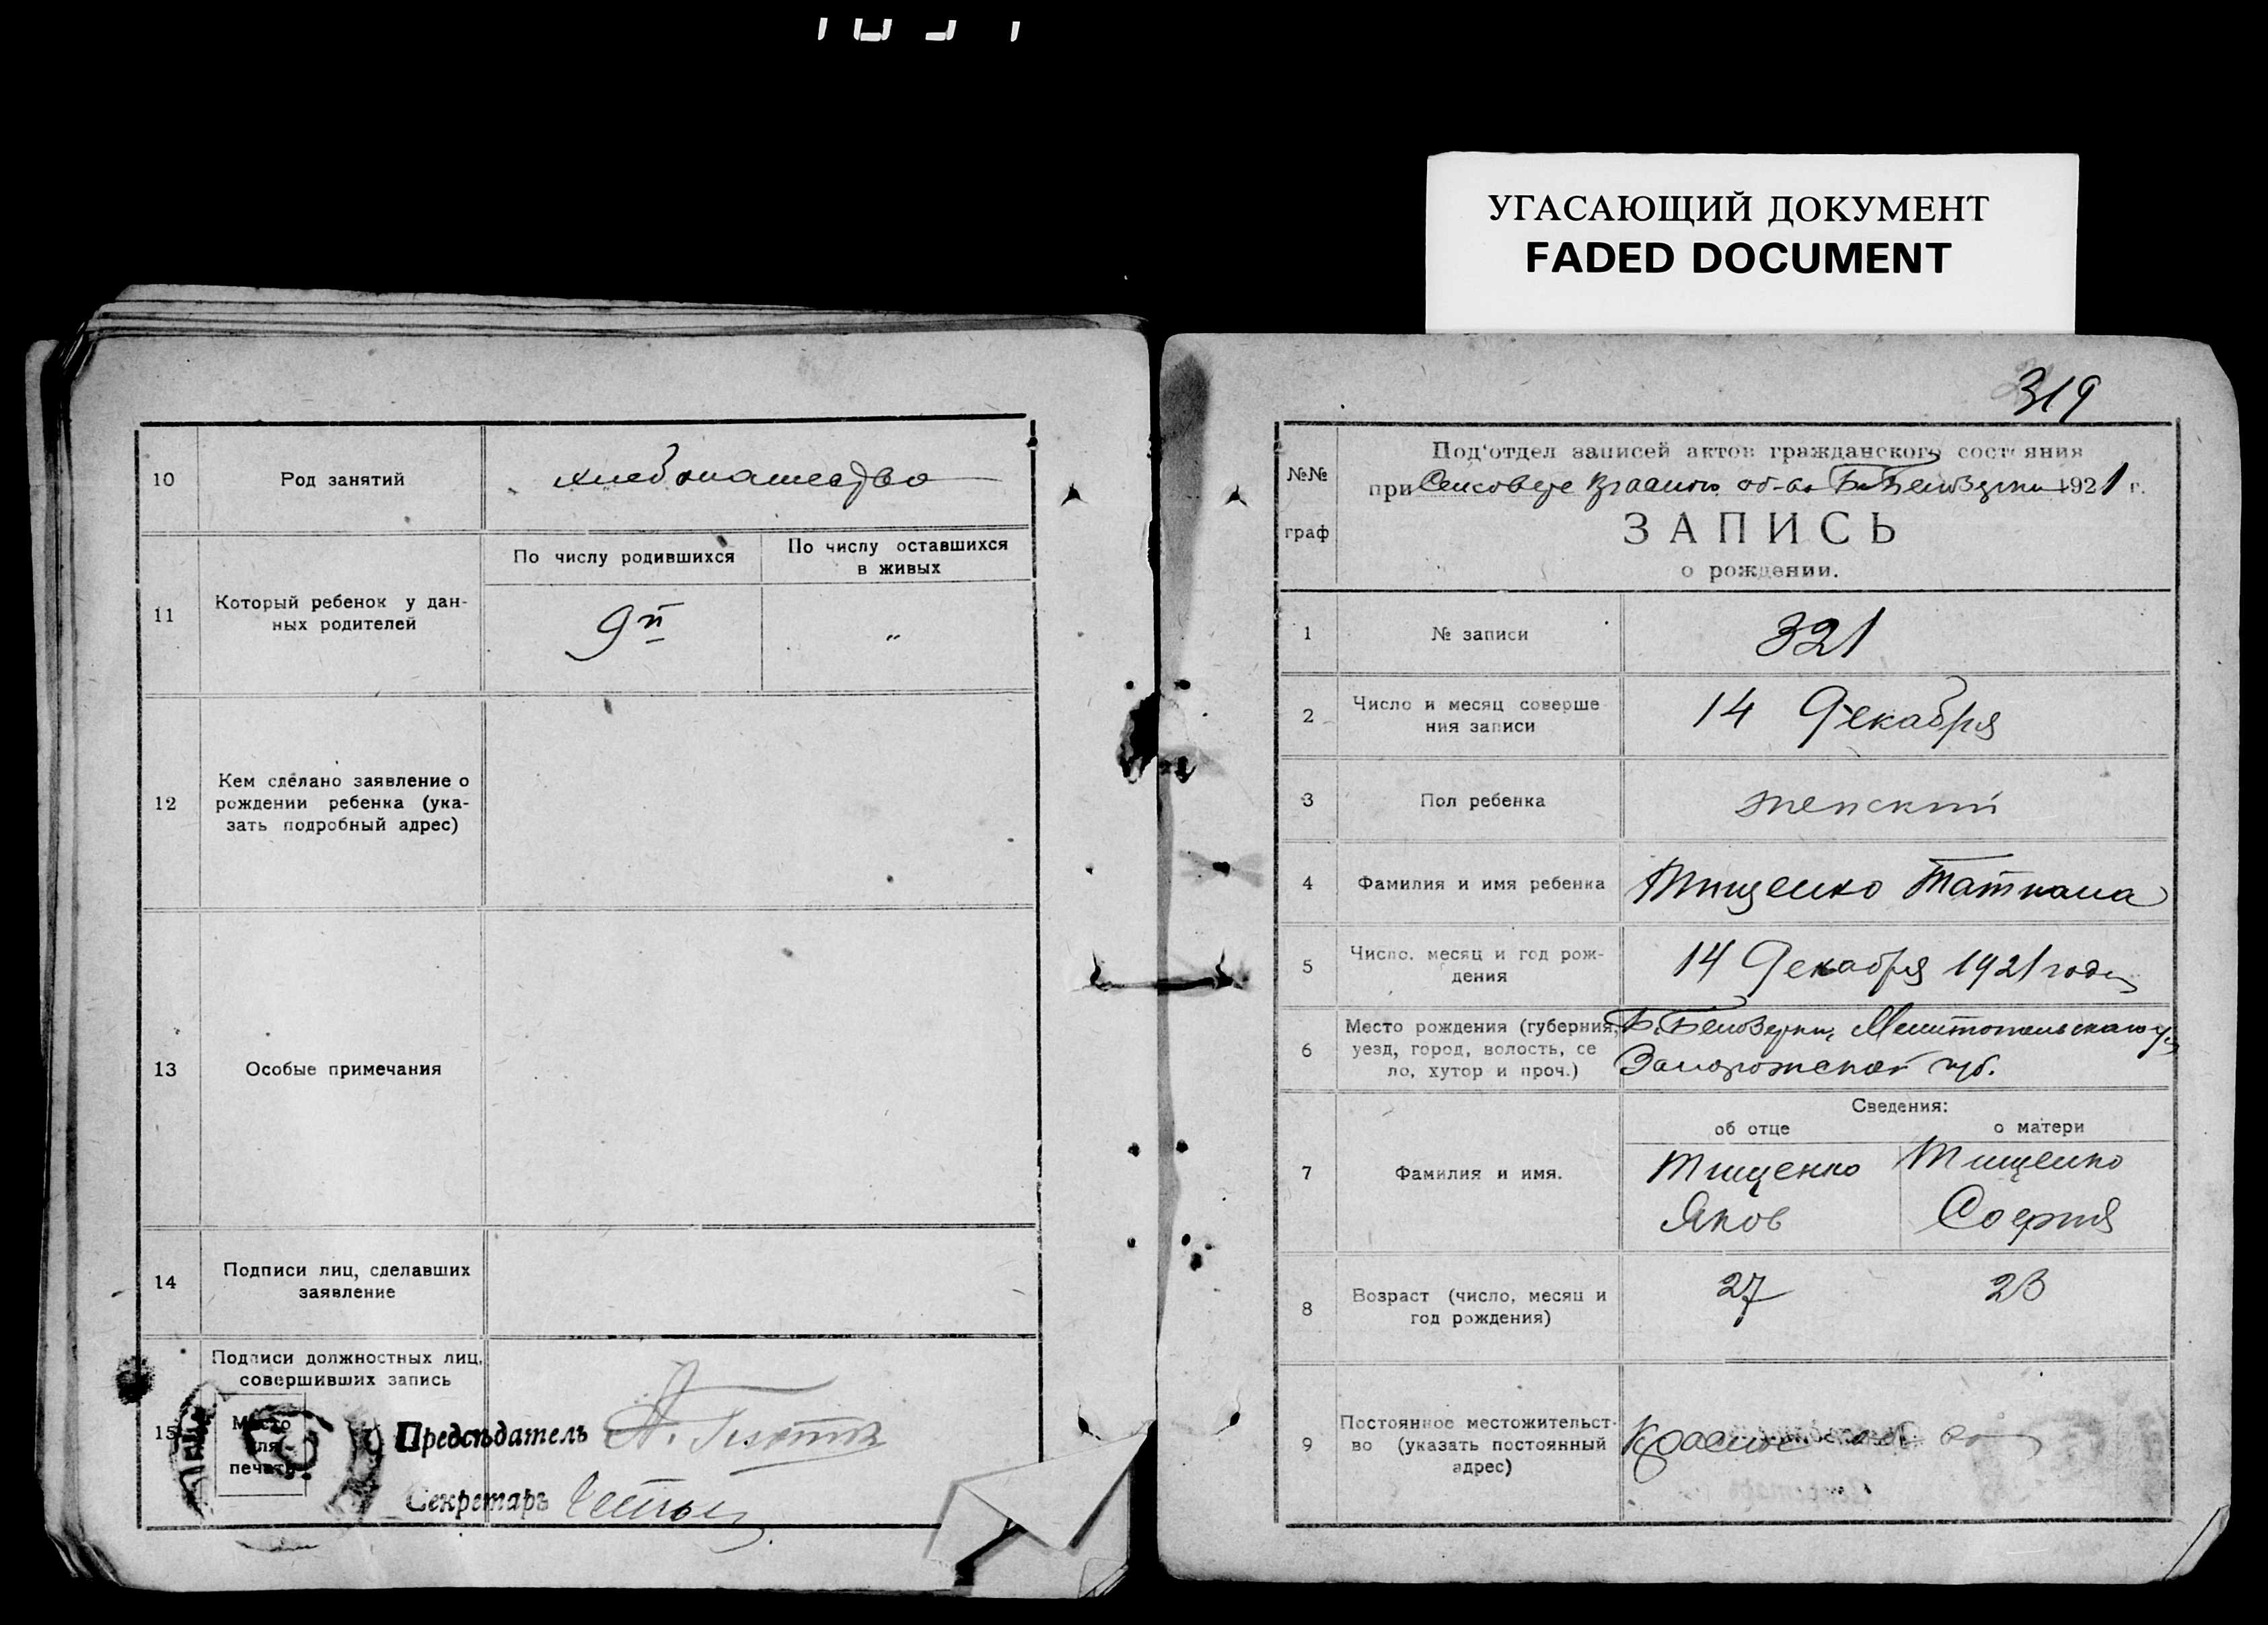 УГАСАЮЩИЙ ДОКУМЕНТ
FADED DOCUMENT
10 Род занятий хлебопашество
11 Который ребенок у дан-
ных родителей
По числу родившихся
По числу оставшихся
в живых
9й "
12 Кем сделано заявление о
рождении ребенка (ука-
зать подробный адрес)
13 Особые примечания
14 Подписи лиц, сделавших
заявление
15 Подписи должностных лиц,
совершивших запись
Место
для
печати
Предсѣдатель
Секретарь
319
№№
граф
Под'отдел записей актов гражданского состояния
при Сельсовете об-ва Б-Белозерки 1921 г.
ЗАПИСЬ
о рождении.
1 № записи 321
2 Число и месяц соверше
ния записи 14 Декабря
3 Пол ребенка женский
4 Фамилия и имя ребенка Тищенко Татиана
5 Число, месяц и год рож-
дения 14 Декабря 1921 года
6 Место рождения (губерния,
уезд, город, волость, се
ло, хутор и проч.)
Б.Белозерки, Мелитопольскаго у.
Запорожской губ.
Сведения:
об отце о матери
7 Фамилия и имя.
Тищенко Тищенко
Яков София
8 Возраст (число, месяц и
год рождения)
27 23
9 Постоянное местожительст-
во (указать постоянный
адрес)